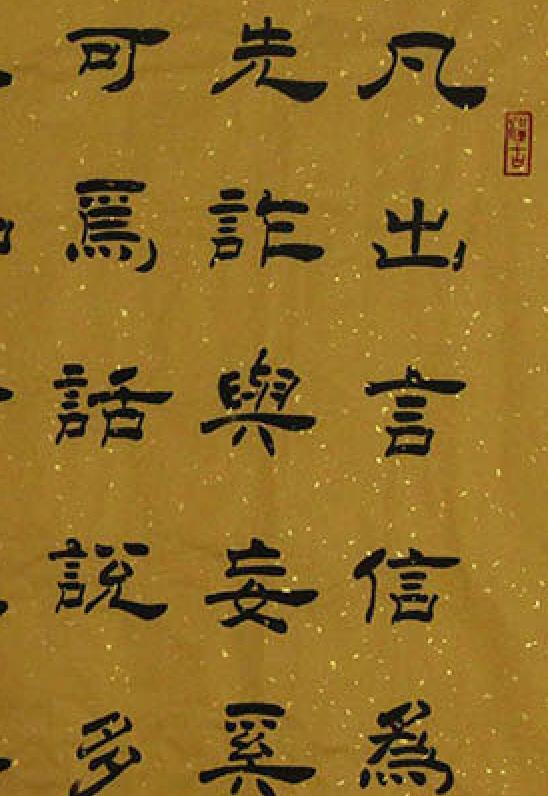 凡出言信爲
先詐與妄奚
可焉話說多